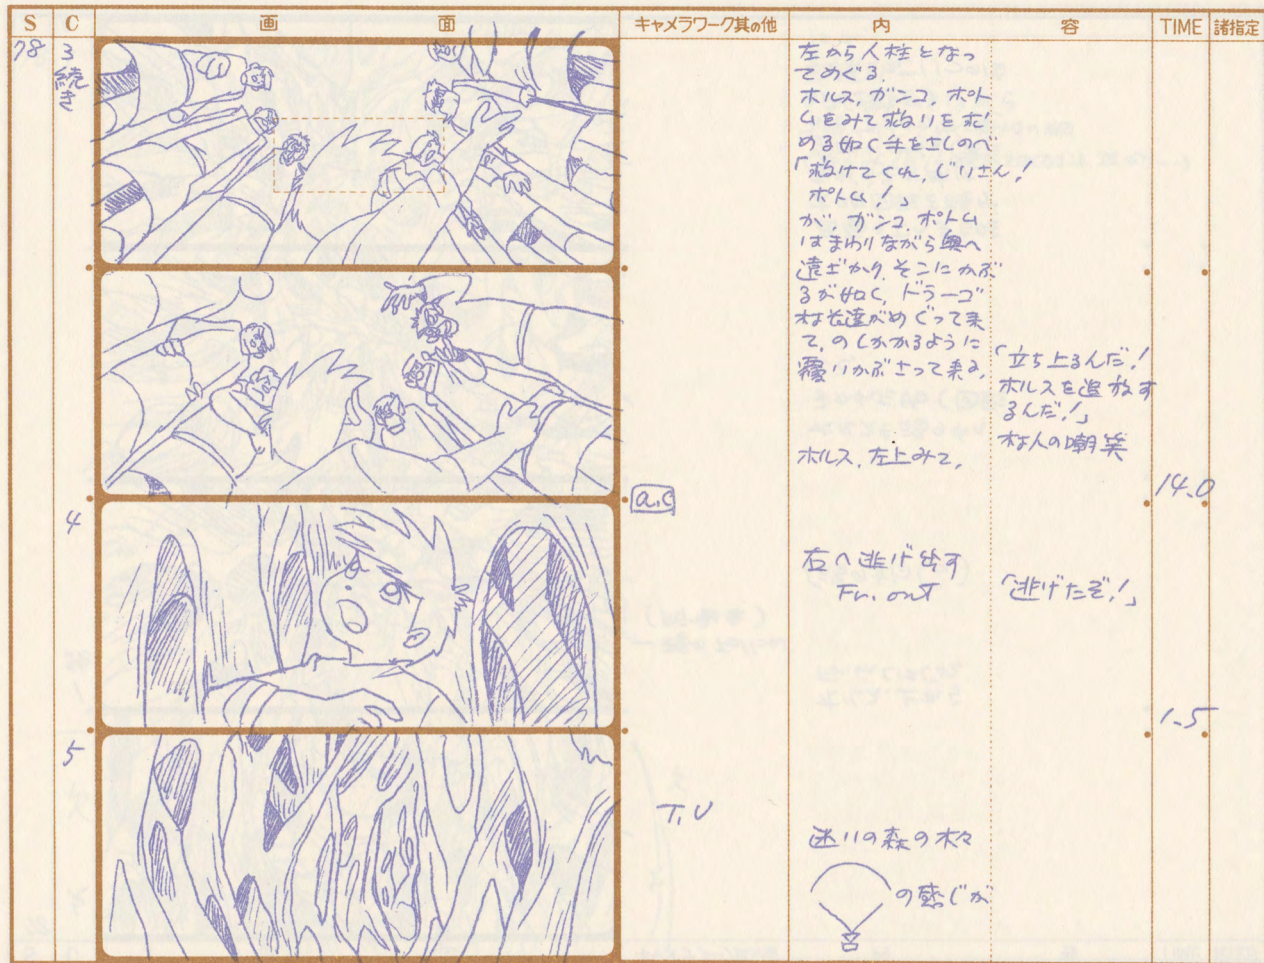 S C 画 面 キャメラワーク其の他 内 容 TIME 諸指定
78 3
続き
左から人柱となっ
てめぐる。
ホルス、ガンコ、ポト
ムをみて救いを求
める如く手をさしのべ
「救けてくれ、じいさん!
ポトム!」
が、ガンコ、ポトム
はまわりながら奥へ
遠ざかり、そこにかぶ
るが如く、ドラーゴ
村長達がめぐって来
て、のしかかるように
覆いかぶさって来る。
「立ち上るんだ!
ホルスを追放す
るんだ!」
村人の嘲笑
ホルス、左上みて、
14.0
a.c
4
右へ逃げ出す
Fr. out
「逃げたぞ!」
1.5
5
T.U
迷いの森の木々
の感じが